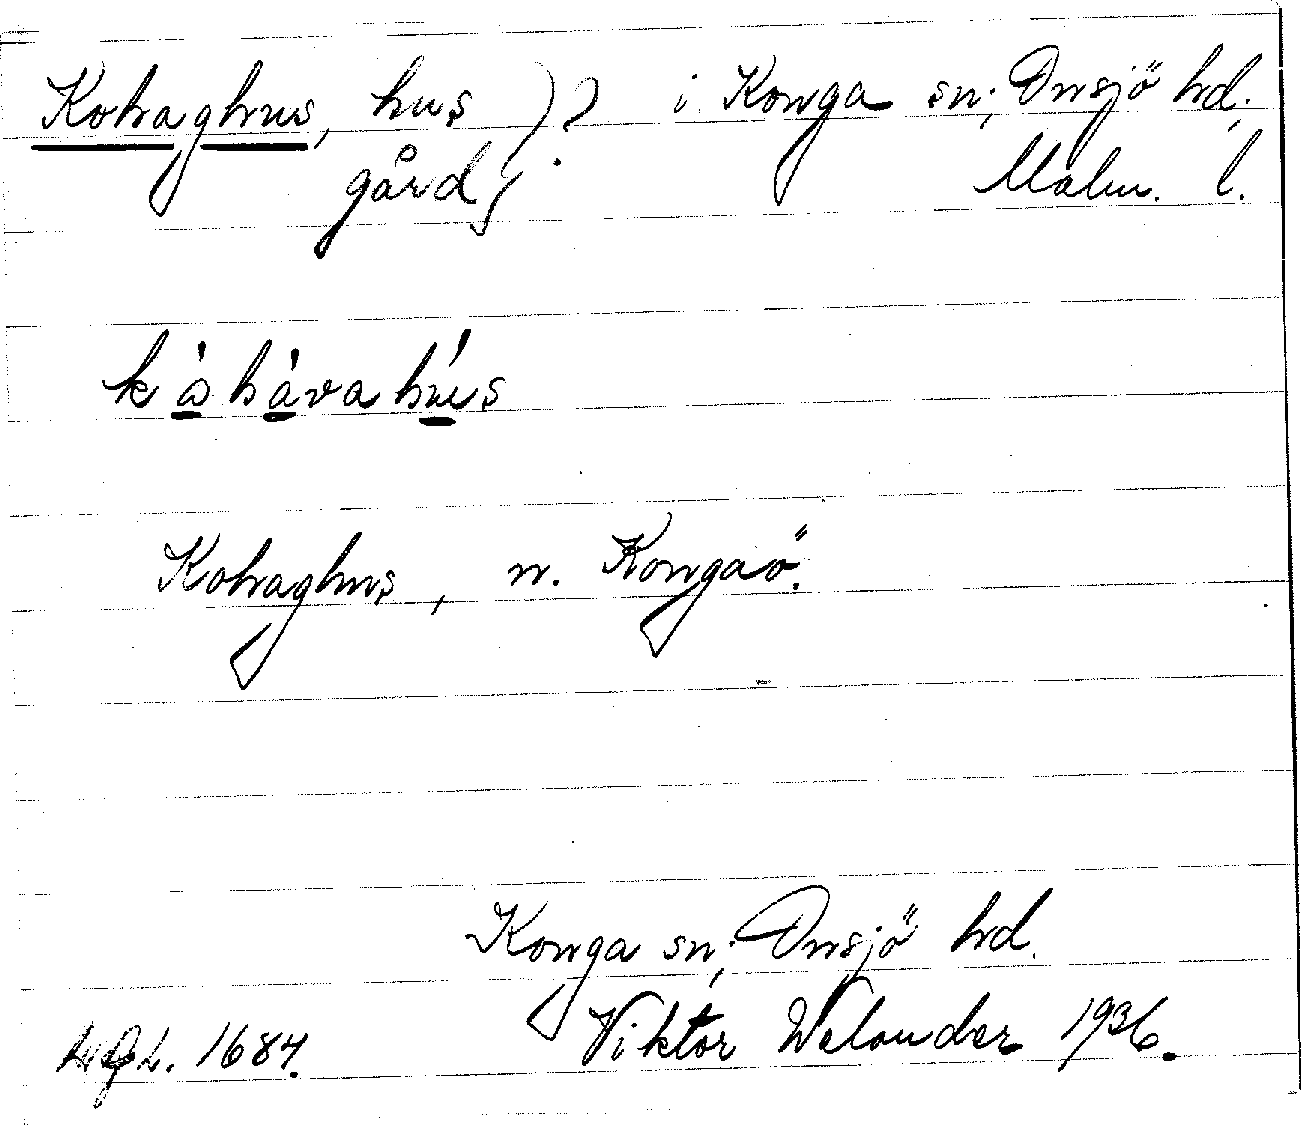 Kohaghus, hus } ? i Konga sn; Onsjö hd,
gård } Malm. l.
kåhávahús
Kohaghus, n. Kongaö.
Konga sn; Onsjö hd.
Viktor Welander 1936.
1684.